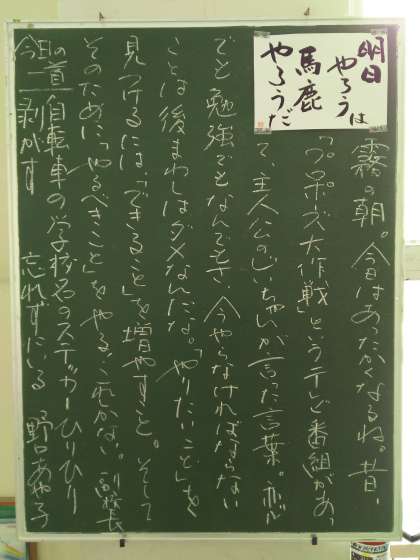 明日
やろうは
馬鹿
やろうだ
霧の朝。今日はあったかくなるね。昔、
「プロポーズ大作戦」というテレビ番組があっ
て、主人公のじいちゃんが言った言葉。恋
でも勉強でもなんでもさ、今やらなければならない
ことは後まわしはダメなんだな。「やりたいこと」を
見つけるには、「できること」を増やすこと。そして
そのために「やるべきこと」をやるっきゃない。副校長
今日の一首 自転車の学校名のステッカーひりひり
剥がす 忘れずにいる 野口あや子